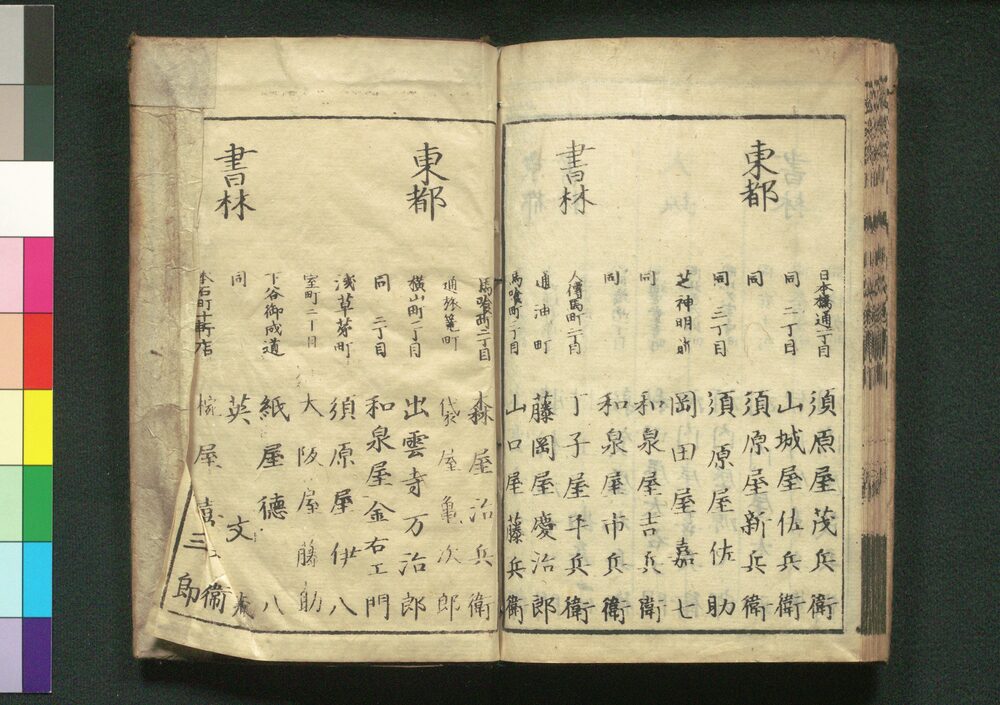 東都
書林
日本橋通一丁目 須原屋茂兵衛
同 二丁目 山城屋佐兵衛
同 須原屋新兵衛
同 三丁目 須原屋佐助
芝神明前 岡田屋嘉七
同 和泉屋吉兵衛
同 和泉屋市兵衛
大傳馬町二丁目 丁子屋平兵衛
通油町 藤岡屋慶治郎
馬喰町二丁目 山口屋藤兵衛
東都
書林
馬喰町二丁目 森屋治兵衛
通旅篭町 袋屋亀次郎
横山町一丁目 出雲寺万治郎
同 二丁目 和泉屋金右エ門
浅草茅町 須原屋伊八
室町二丁目 大阪屋藤助
下谷御成道 紙屋徳八
同 英文
本石町十軒店 屋
三郎
衛